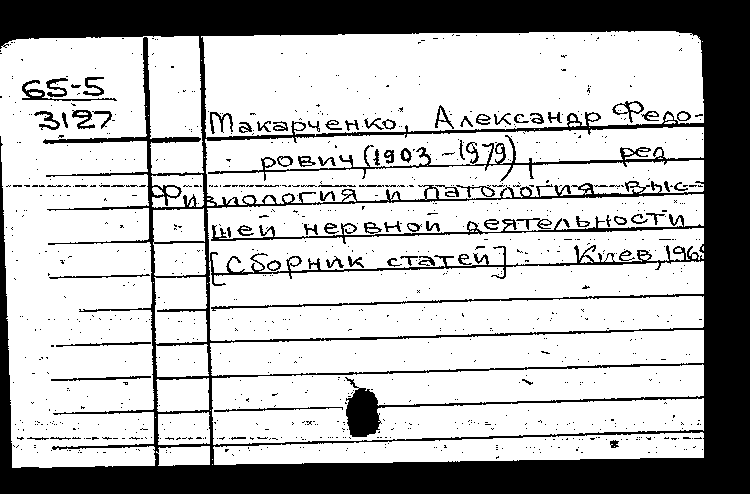 65-5
3127
Макарченко, Александр Федо-
рович, (1903-1979), ред
Физиология и патология выс-
шей нервной деятельности
[Сборник статей] Киев,